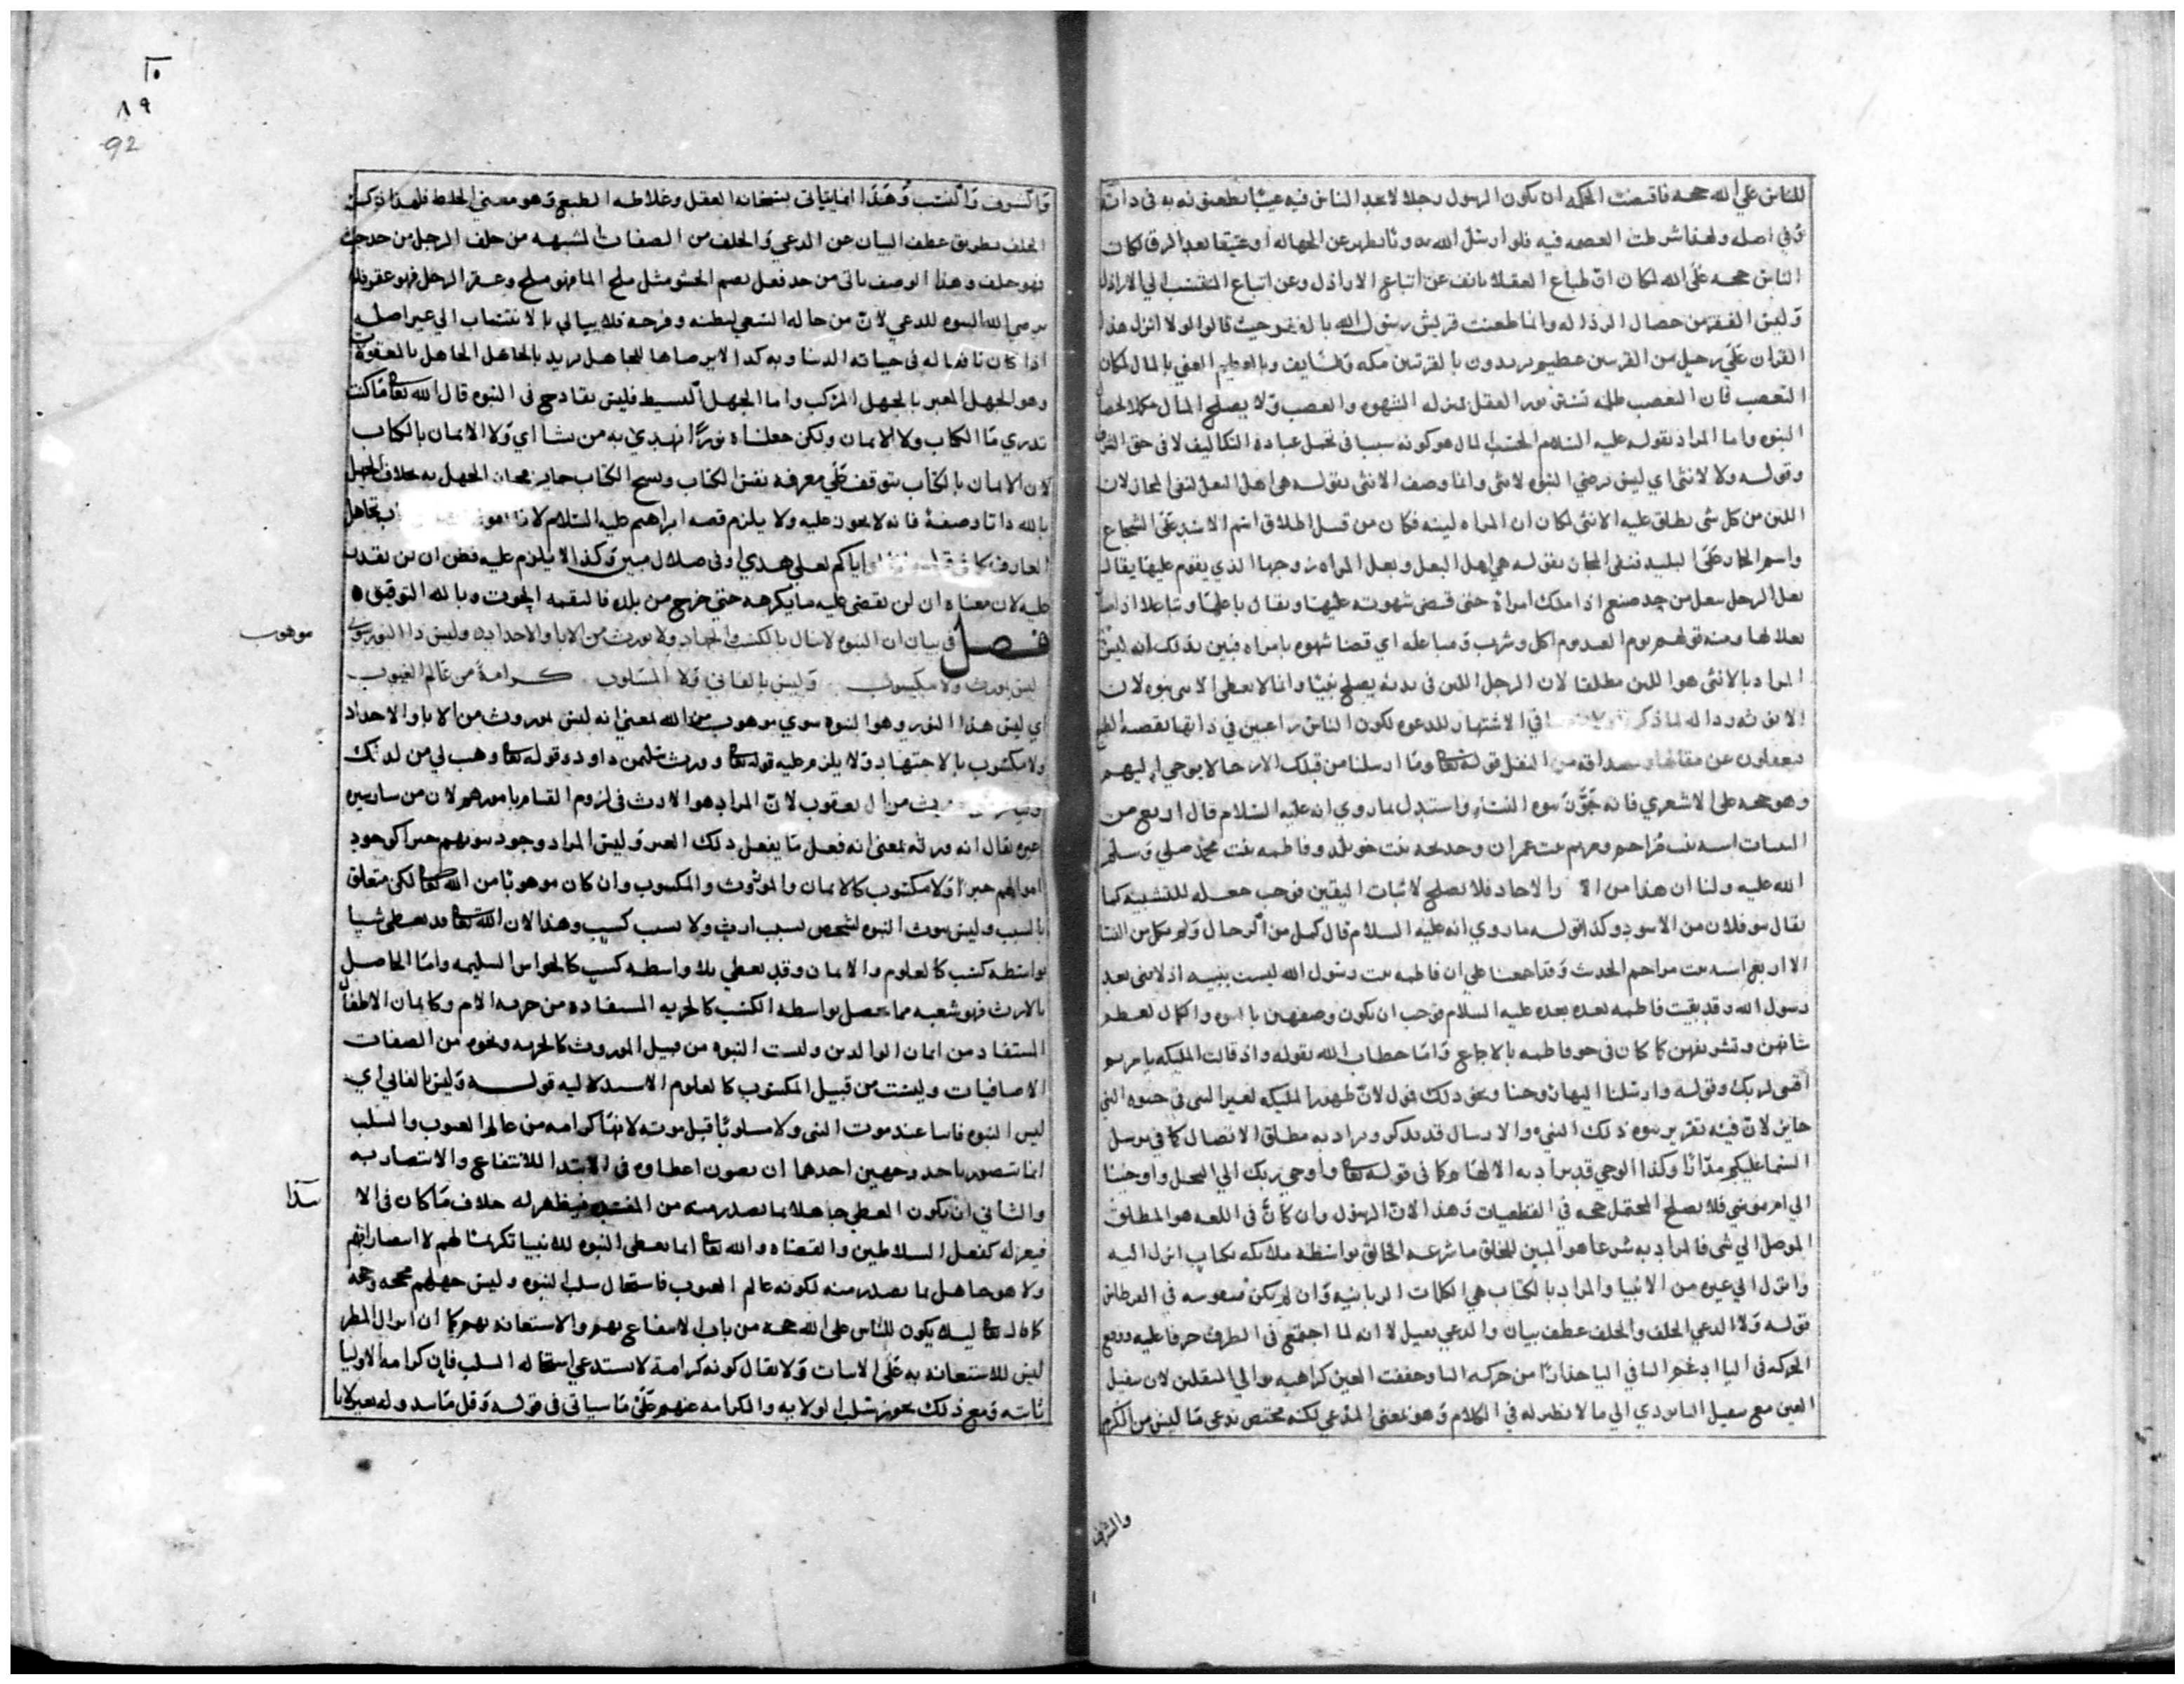 للناس علي الله حجه فاقتضت الحكمه ان يكون الرسول رجلا لا يجد الناس فيه عيبا يطعنونه به في ذاته
وفي اصله ولهذا شرطت العصمه فيه فلو ارسل الله عن الجهاله او عتيقا بعد الرق لكان
الناس حجه علي الله لكان ان طباع العقلا تانف عن اتباع الاراذل وعن اتباع المنتسب الي الاراذل
وليس الفقر من خصال الرذاله وانما طعنت قريش رسول الله بالفقر حيث قالوا لولا انزل هذا
القران علي رجل من القريتين عظيم يريدون بالقريتين مكه والطايف وبالعظيم الغني بالمال لمكان
التعصب فان التعصب ظلمه تستر نور العقل بمنزله الشهوه والغضب ولا يصلح المال مكملا لخصال
النبوه واما المراد بقوله عليه السلام الحسب المال هو كونه سببا في تحمل عباده التكاليف لا في حق
وقوله ولا لانثي اي ليس يرضي النبوه لانثي وانما وصف الانثي بقوله هي اهل البعل لنفي المجاز لان
اللين من كل شي يطلق عليه الانثي لكان ان المراه لينه فكان من قبيل اطلاق اسم الاسد علي الشجاع
واسم الحمار علي البليد فنفي المجاز بقوله هي اهل البعل وبعل المراه زوجها الذي يقوم عليها يقال
بعل الرجل يبعل من حد صنع اذا ملك امراة حتي قضي شهوته عليها ويقال باعلها وتباعلا اذا
بعلا لها ومنه قولهم يوم العيد يوم اكل وشرب ومباعله اي قضا شهوه بامراه فبين بذلك انه ليس
المراد بالانثي هو اللين مطلقا لان الرجل اللين في بدنه يصلح نبيا وانما لا يعطي الانثي نبوه لان
الانوثه في الاشتهار للدعوه لكون الناس راغبين في ذاتها لقصد الطبع
فيغفلون عن مقالها من النقل قوله تعالى وما ارسلنا من قبلك الا رجالا يوحي اليهم
وهو حجه علي الاشعري فانه جوز نبوه النسا واستدل بما روي انه عليه السلام قال اربع من
النبيات اسيه بنت مزاحم ومريم بنت عمران وخديجه بنت خويلد وفاطمه بنت محمد صلي وسلم
الله عليه ولنا ان هذا من الاحاد فلا يصلح لاثبات اليقين فوجب جعله للتشبيه كما
يقال بنو فلان من الاسود وكذا قوله ما روي انه عليه السلام قال كمل من الرجال ولم يكمل من النسا
الا اربع اسيه بنت مزاحم الحديث وقد اجمعنا علي ان فاطمه بنت رسول الله ليست بنبيه اذ لا نبي بعد
رسول الله وقد بقيت فاطمه بعده عليه السلام فوجب ان يكون وصفهن بالنبوه والكمال لعظم
شانهن وتشريفهن كما كان في حق فاطمه بالاجماع واما خطاب الله بقوله واذ قالت المليكه يا مريم
اقنتي لربك وقوله وارسلنا اليها روحنا ونحو ذلك فنقول لان ظهور المليكه لغير النبي في حيوه النبي
جايز لان فيه تقرير نبوه ذلك النبي والارسال قد يذكر ويراد به مطلق الاتصال كما في يرسل
السما عليكم مدرارا وكذا الوحي قد يراد به الالهام كما في قوله تعالى واوحي ربك الي النحل واوحينا
الي ام موسي فلا يصلح المحتمل حجه في القطعيات وهذا لان الرسول وان كان في اللغه هو المطلق
الموصل الي شي فالمراد به شرعا هو المبين للخلق ما شرعه الخالق بواسطه ملايكه بكتاب انزل اليه
وانزل الي غيره من الانبيا والمراد بالكتاب هي الكلمات الربانيه وان لم يكن منقوشه في القرطاس
قوله ولا الدعي الخلف والخلف عطف بيان والدعي فعيل الا انه لما اجتمع في الطرف حرفا عليه ووقع
الحركه في اليا ادغم اليا في اليا
العين مع الي ما لا نظير له في الكلام وهو بمعني المدعي لكنه مختص بدعي ما ليس من الكرم
والشرف
١٠
٨٩
92
والشرف والنسب وهذا انما يتاتي بسخافه العقل وغلاظه الطبع وهو معني الخلط فلهذا ذكر
الخلف بطريق عطف البيان عن الدعي والخلف من الصفات المشبهه من خلف الرجل من حد
فهو خلف وهذا الوصف ياتي من حد فعل بضم الحشو مثل ملح الما فهو ملح وعقر الرجل فهو عقر
يرضي الله النبوه للدعي لان من حاله السعي لبطنه وفرجه فلا يبالي بالانتساب الي غير اصله
اذا كان نافعا له في حياته الدنيا وبه كذا لا يرضاها للجاهل يريد بالجاهل الجاهل بالمعقولات
وهو الجهل المعبر بالجهل المركب واما الجهل البسيط فليس بقادح في النبوه قال الله تعالى ما كنت
تدري ما الكتاب ولا الايمان ولكن جعلناه نورا نهدي به من نشا اي ولا الايمان بالكتاب
لان الايمان بالكتاب يتوقف علي معرفه نفس الكتاب ونسخ الكتاب جايز فجاز الجهل به بخلاف الجهل
بالله ذاتا وصفة فانه لا يجوز عليه ولا يلزم قصه ابراهيم عليه السلام تجاهل
العارف كما في واياكم لعلي هدي او في ضلال مبين وكذا لا يلزم عليه فظن ان لن نقدر
عليه لان معناه ان لن نقضي عليه ما يكرهه حتي خرج من بلده فالتقمه الحوت وبالله التوفيق
فصل في بيان ان النبوه لا تنال بالكسب والجهاد ولا تورث من الابا والاجداد وليس ذا النور سوي
موهوب
ليس بمورث ولا مكسوب وليس بالفاني ولا المسلوب كرامة من عالم الغيوب
اي ليس هذا النور وهو النبوه سوي موهوب من الله بمعني انه ليس بموروث من الابا والاجداد
ولا مكسوب بالاجتهاد ولا يلزم عليه قوله تعالى وورث سليمن داود وقوله تعالى وهب لي من لدنك
وليا يرثني ويرث من ال يعقوب لان المراد هو الارث في لزوم القيام بامورهم لان من سار سيره
غيره يقال انه ورثه بمعني انه فعل ما يفعل ذلك الغير وليس المراد وجود نبوتهم جبرا كوجود
اموالهم جبرا ولا مكسوب كالايمان والموروث والمكسوب وان كان موهوبا من الله تعالى لكن متعلق
بالسبب وليس ثبوت النبوه لشخص بسبب ارث ولا بسبب كسب وهذا لان الله تعالى قد يعطي شيا
بواسطه كسب كالعلوم والايمان وقد يعطي بلا واسطه كسب كالحواس السليمه واما الحاصل
بالارث فهو شعبه مما يحصل بواسطه الكسب كالحريه المستفاده من حريه الام وكايمان الاطفال
المستفاد من ايمان الوالدين وليست النبوه من قبيل الموروث كالحريه ونحوه من الصفات
الاضافيات وليست من قبيل المكسوب كالعلوم الاستدلاليه قوله وليس بالفاني اي
ليس النبوه فانيا عند موت النبي ولا مسلوبا قبل موته لانها كرامه من عالم الغيوب والسلب
انما يتصور باحد وجهين احدهما ان يكون اعطاوه في الابتدا للانتفاع والانتصار به
والثاني ان يكون المعطي جاهلا بما يصدر منه من فيظهر له خلاف ما كان في الا
بتدا
فيعزله كفعل السلاطين والقضاه والله تعالى انما يعطي النبوه للانبيا تكريما لهم لا
ولا هو جاهل بما يصدر منه لكونه عالم الغيوب فاستحال سلب النبوه وليس جهلهم حجه
كما قال تعالى ليلا يكون للناس علي الله حجه من باب الانتفاع بهم والاستعانه بهم كما ان انزال المطر
ليس للاستعانه به علي الانبات ولا يقال كونه كرامة لا يستدعي استحاله السلب فان كرامه الاوليا
ثابته ومع ذلك يجوز سلب الولايه والكرامه عنهم علي ما سياتي في قوله وقل